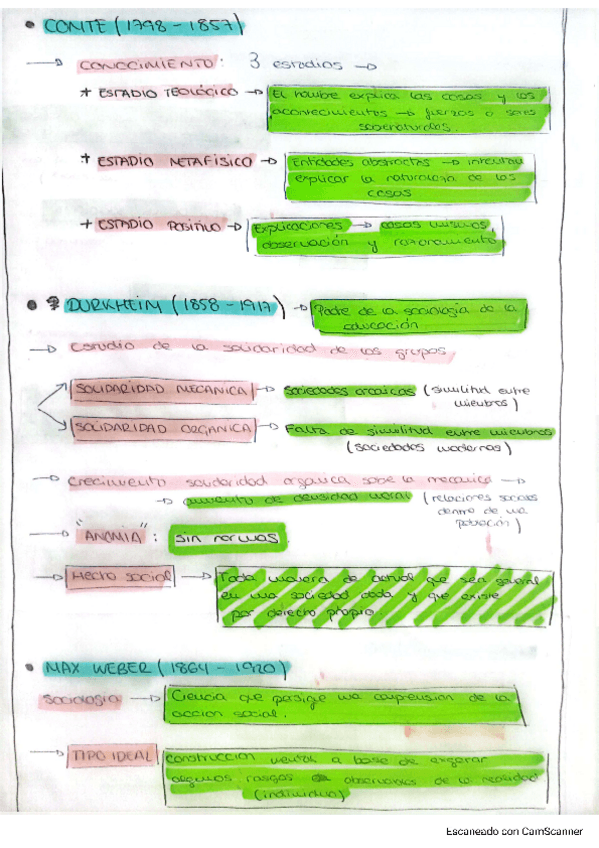 • COMTE (1798 - 1857)
→ CONOCIMIENTO: 3 estadios →
+ ESTADIO TEOLÓGICO → El hombre explica las cosas y los
acontecimientos → fuerzas o seres
sobrenaturales.
+ ESTADIO METAFÍSICO → Entidades abstractas → intentan
explicar la naturaleza de las
cosas
+ ESTADIO POSITIVO → Explicaciones → cosas mismas,
observación y razonamiento
• DURKHEIM (1858 - 1917) → Padre de la sociología de la
educación
→ Estudio de la solidaridad de los grupos
SOLIDARIDAD MECANICA → Sociedades arcaicas (similitud entre
miembros)
SOLIDARIDAD ORGANICA → Falta de similitud entre miembros
(sociedades modernas)
→ Crecimiento solidaridad organica sobre la mecanica →
→ aumento de densidad moral (relaciones sociales
dentro de una
población)
→ "ANOMIA": sin normas
→ Hecho social → Toda manera de actuar que sea general
en una sociedad dada y que existe
por derecho propio.
• MAX WEBER (1864 - 1920)
Sociologia → Ciencia que persigue una comprension de la
accion social.
→ TIPO IDEAL construccion mental a base de exagerar
algunos rasgos observables de la realidad
(individuo)
Escaneado con CamScanner